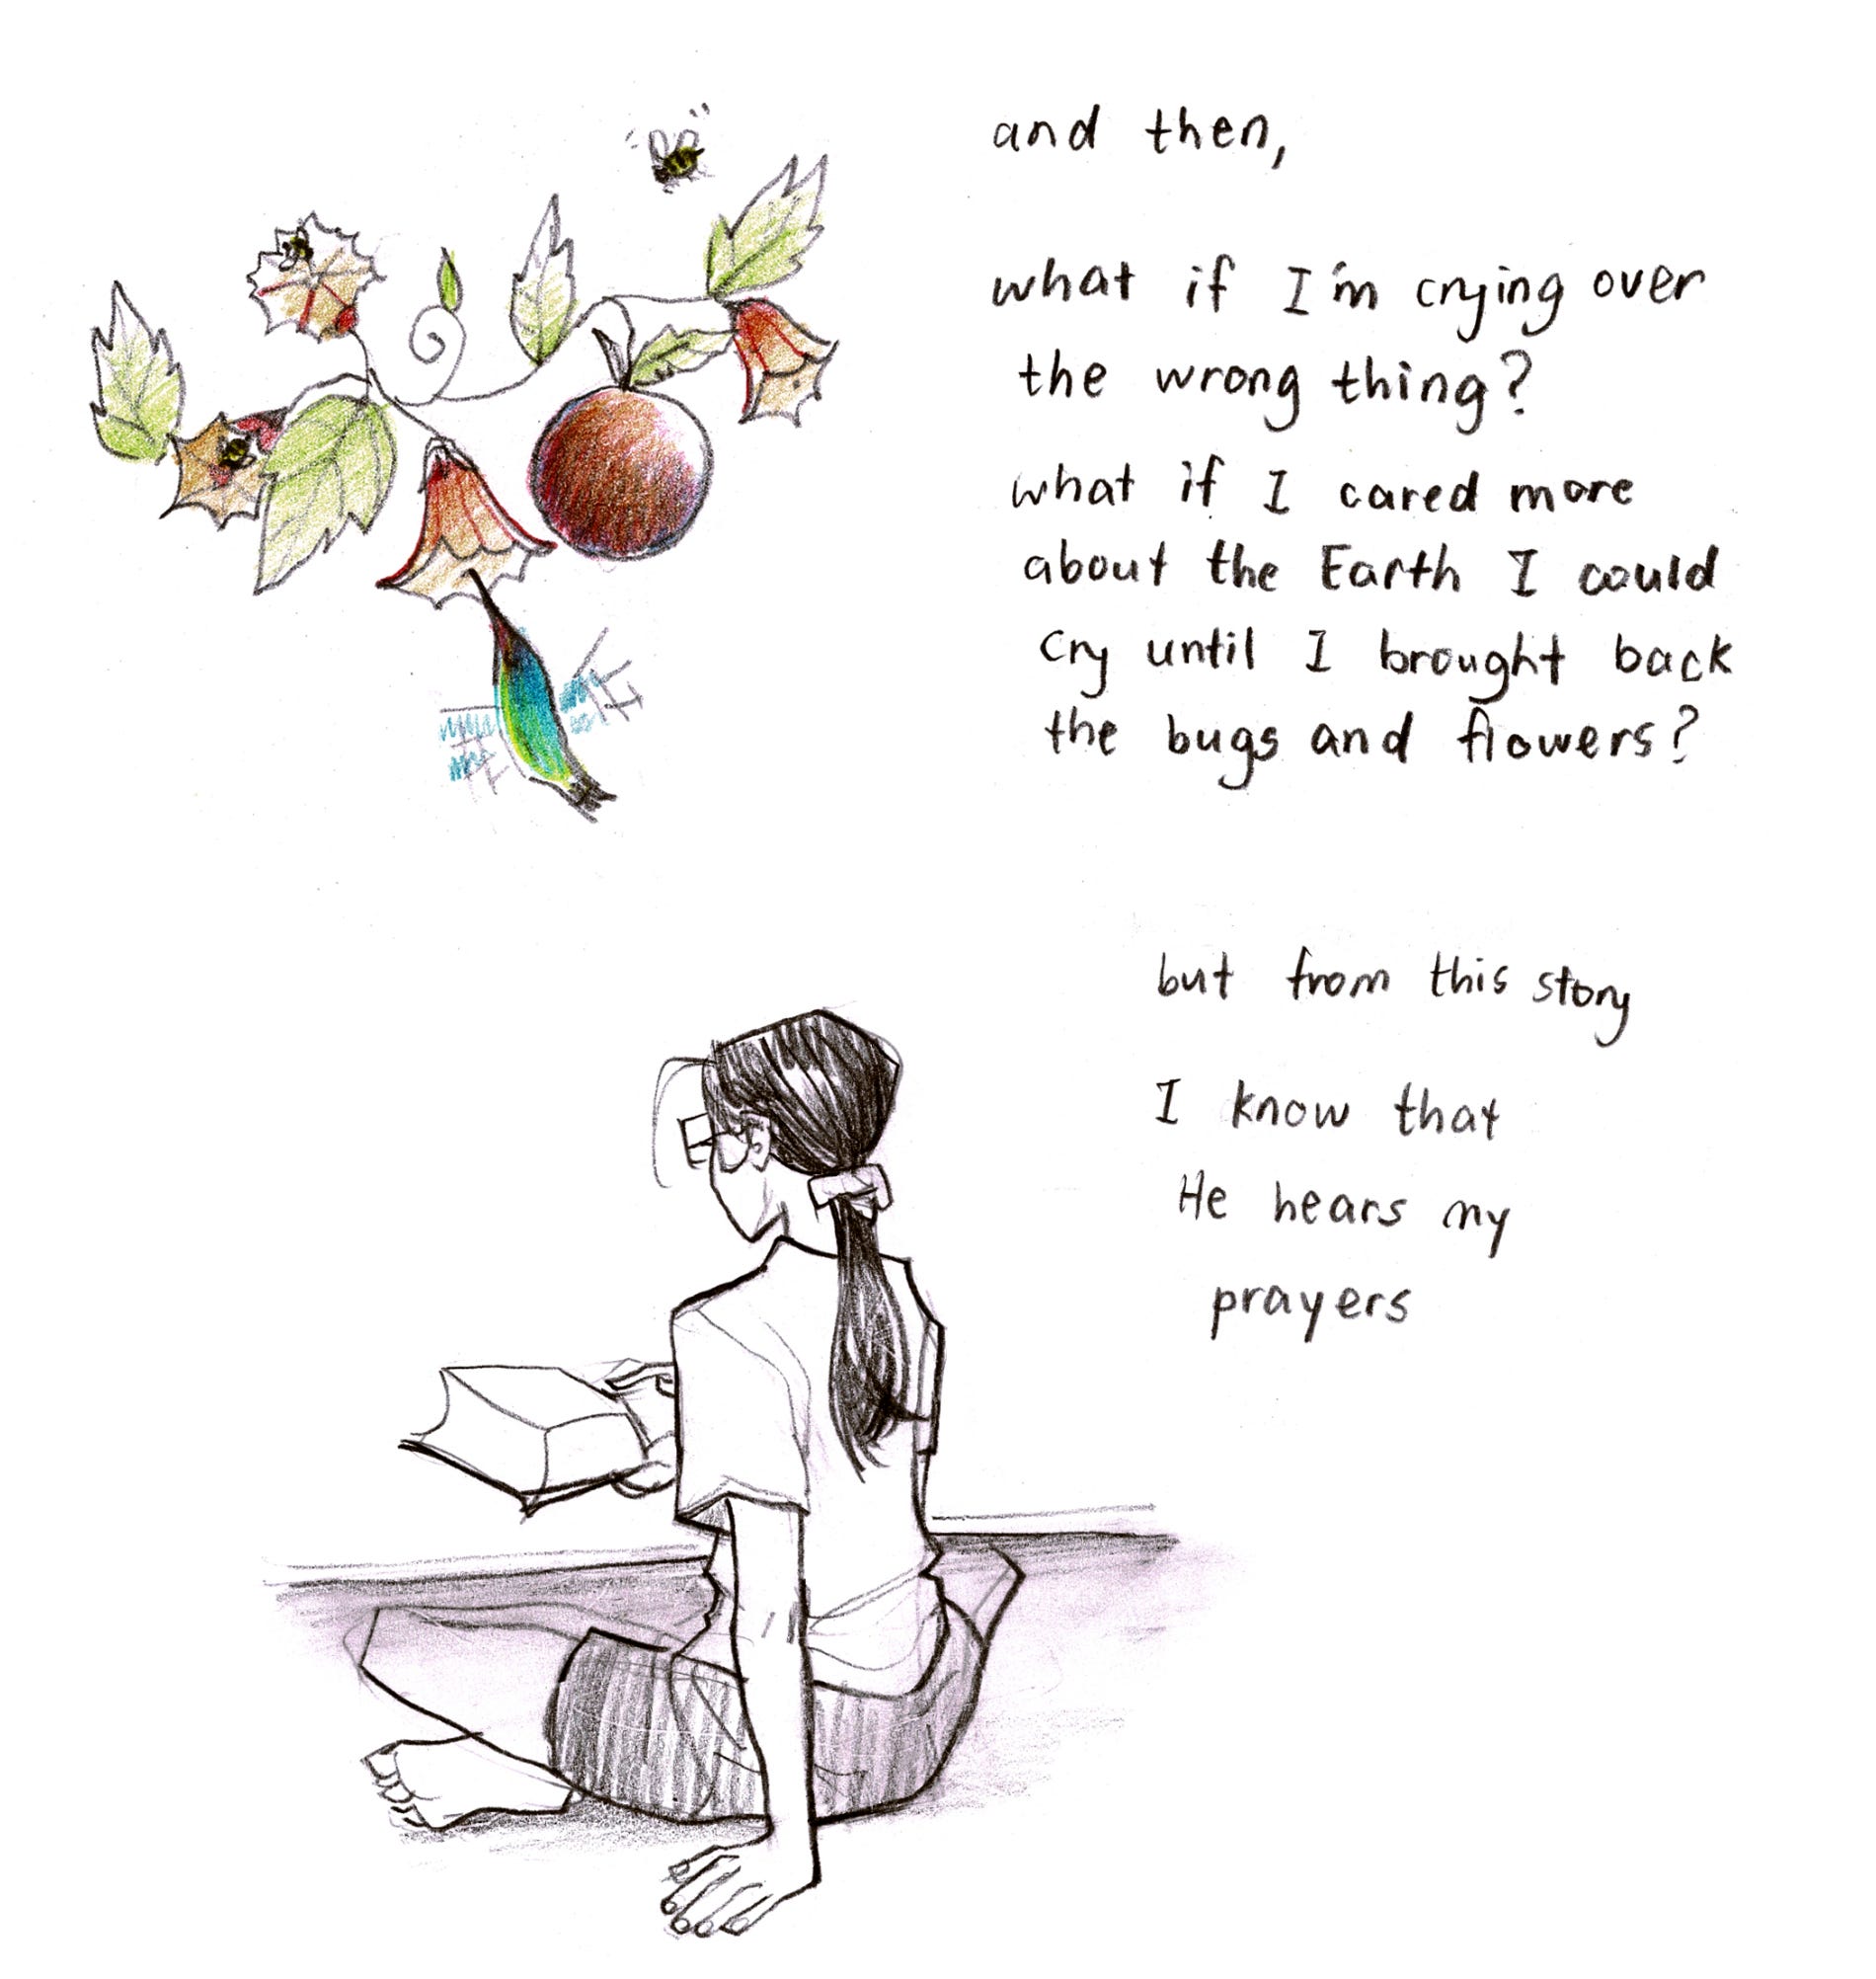 and then,
what if I'm crying over
the wrong thing?
what if I cared more
about the Earth I could
cry until I brought back
the bugs and flowers?
but from this story
I know that
He hears my
prayers